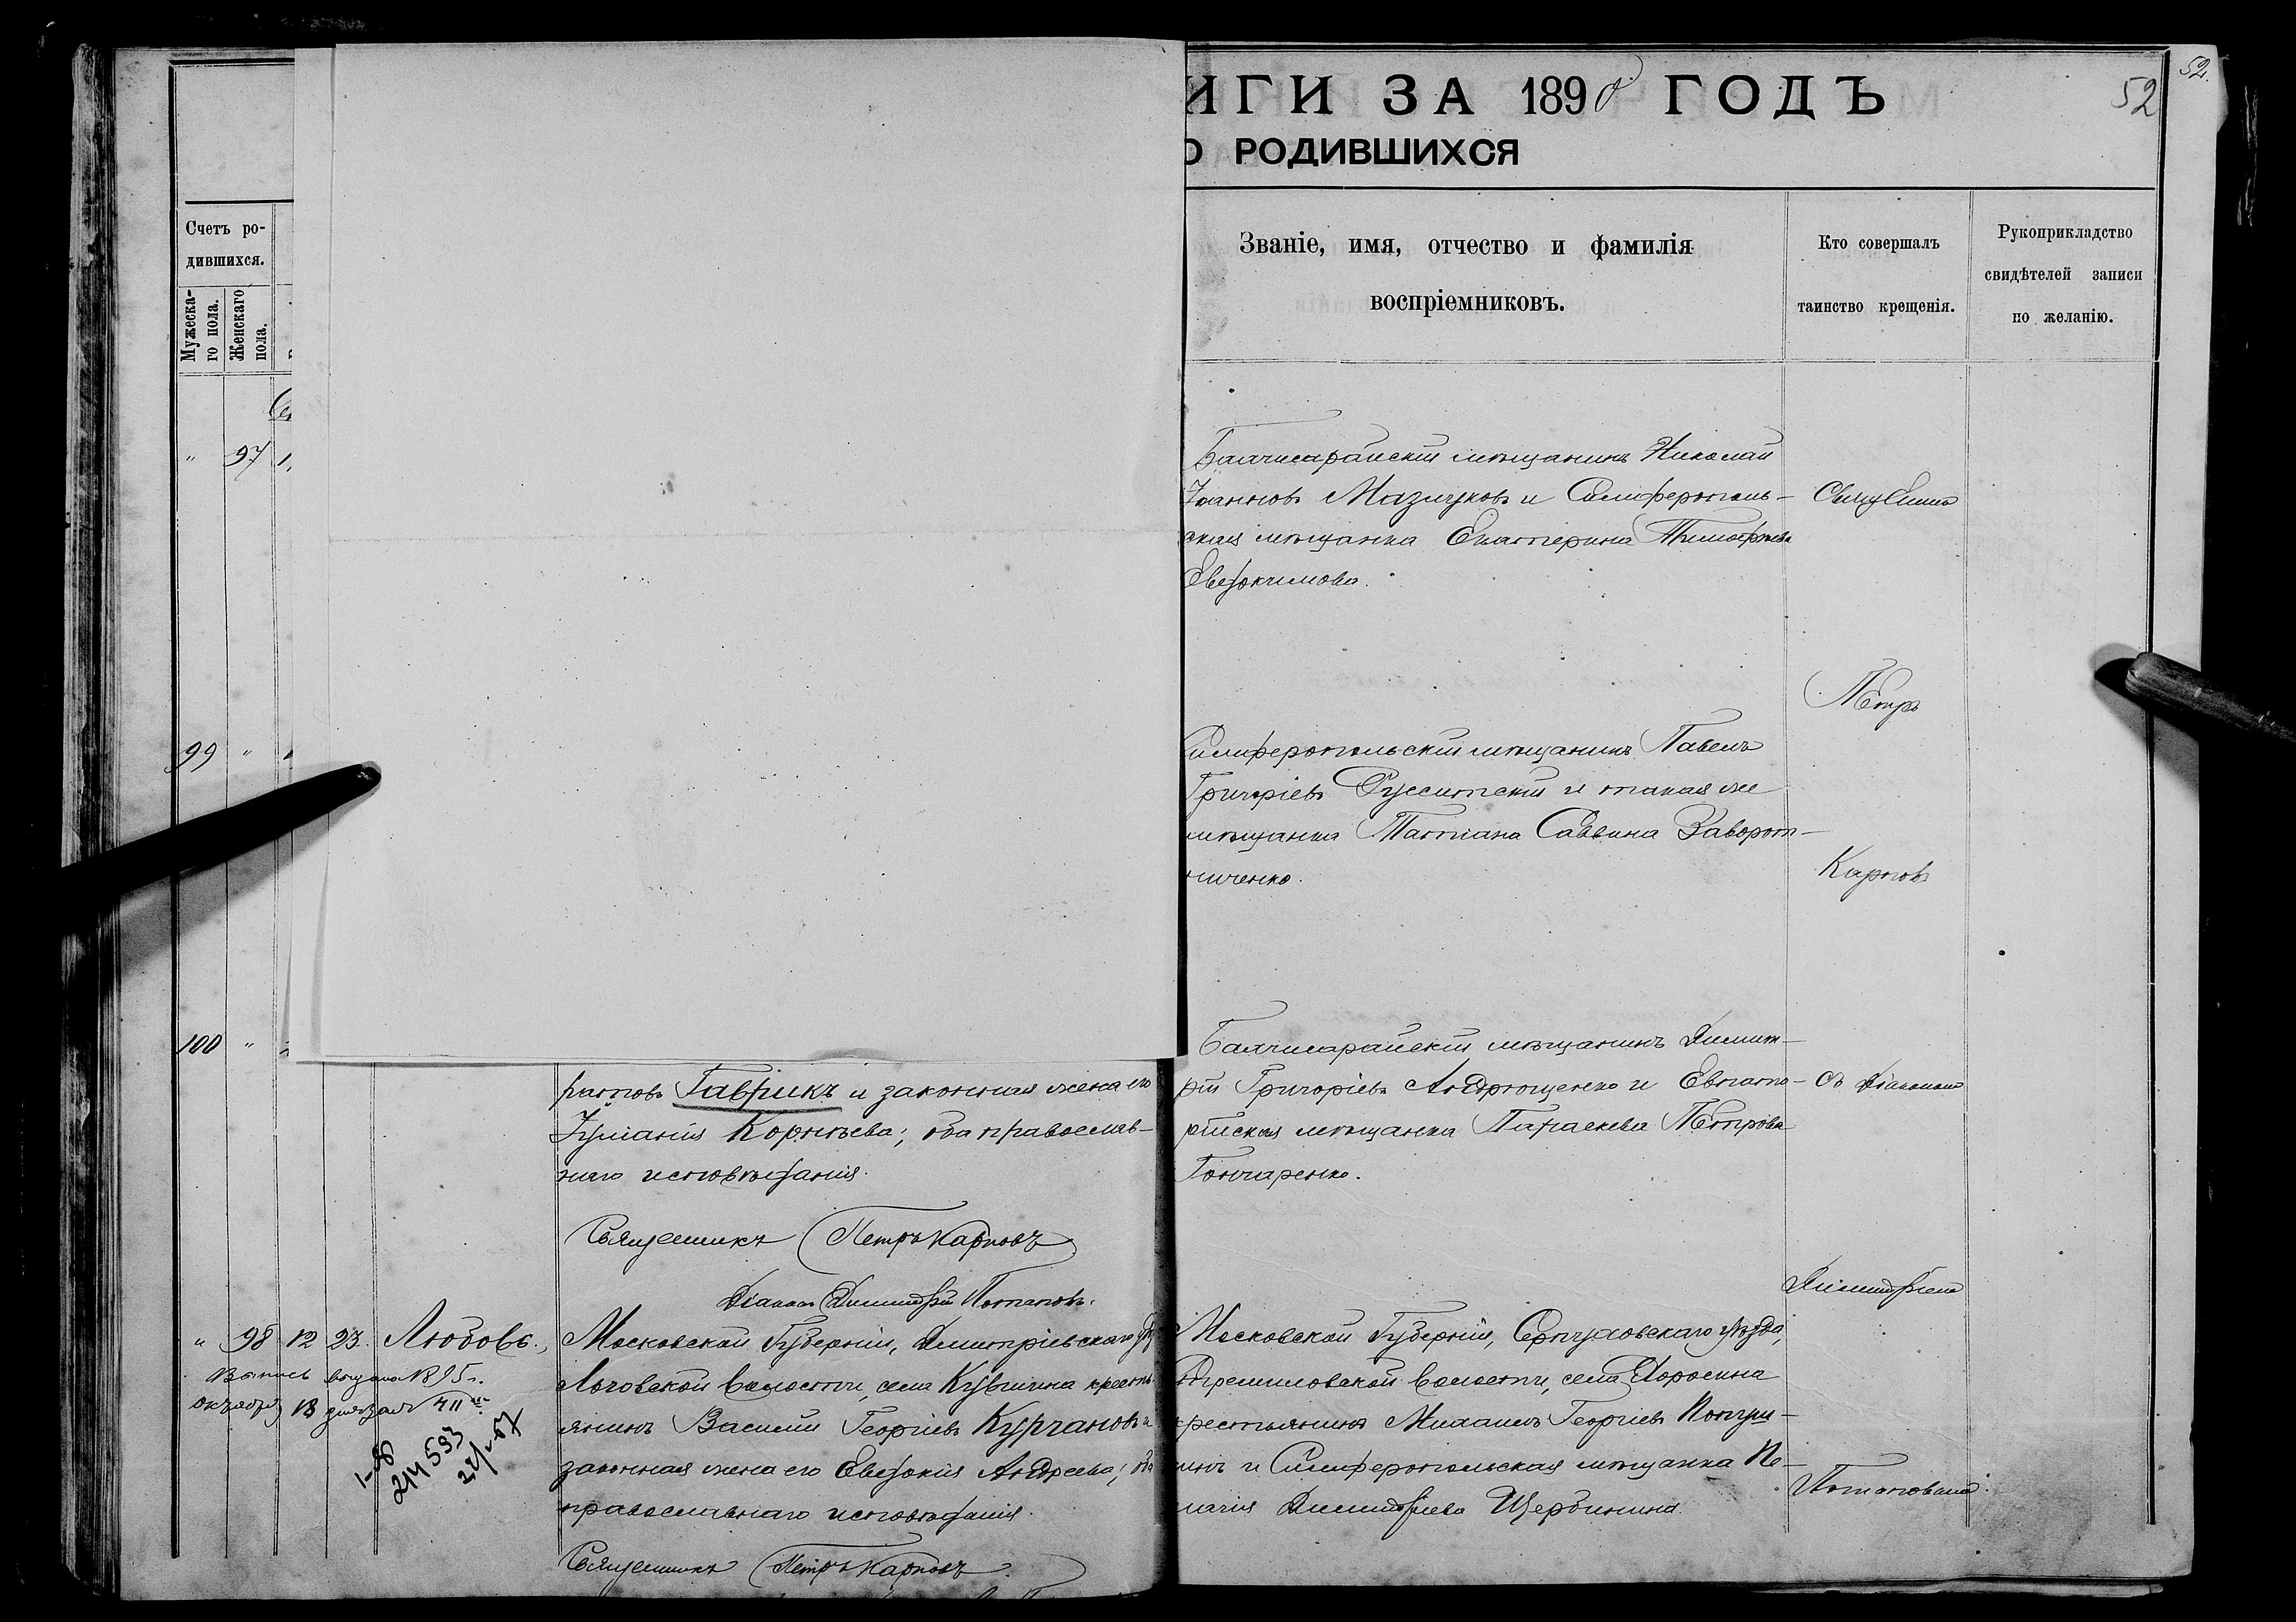 ИГИ ЗА 1890 ГОДЪ
О РОДИВШИХСЯ
52
52.
Счетъ ро-
дившихся.
Мужеска-
го пола.
Женскаго
пола.
Званіе, имя, отчество и фамилія
воспріемниковъ.
Кто совершалъ
таинство крещенія.
Рукоприкладство
свидѣтелей записи
по желанію.
" 97
Бахчисарайскій мѣщанинъ Николай
Іоанновъ Мазлуковъ и Симферополь-
ская мѣщанка Екатерина Тимофѣева
Евдокимова.
Петръ
99 "
Симферопольскій мѣщанинъ Павелъ
Григоріевъ и такая же
мѣщанка Татіана Саввина Заворот-
ниченко.
Карповъ
100 "
Бахчисарайскій мѣщанинъ Димит-
рій Григоріевъ Андрющенко и Евпато-
рійская мѣщанка Параскева Петрова
Гончаренко.
съ діакономъ
Димитріемъ
Потаповымъ.
ратовъ Гаврикъ и законная жена его
Іуліанія Корнѣева; оба православ-
наго исповѣданія.
Священникъ Петръ Карповъ
Діаконъ Димитрій Потаповъ.
" 98 12 23. Любовь.
Выпись выдана 1895 г.
октября 13 дня за №
Московской Губерніи, Димитріевскаго
Логовской волости, села Кувшина кресть-
янинъ Василій Георгіевъ Курчановъ и
законная жена его Евдокія Андреева; оба
православнаго исповѣданія.
Священникъ Петръ Карповъ
Московской Губерніи, Серпуховскаго уѣзда,
Стремиловской волости, села Доросина
крестьянинъ Михаилъ Георгіевъ
и Симферопольская мѣщанка Пе-
лагія Димитріева Щербинина.
214 593